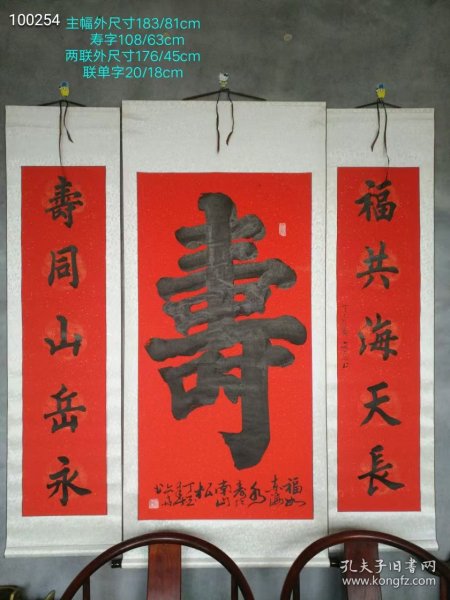 100254
主幅外尺寸183/81cm
寿字108/63cm
两联外尺寸176/45cm
联单字20/18cm
福共海天長
壽
福如
東海
壽比
南山
松
壽同山岳永
孔夫子旧书网
www.kongfz.com